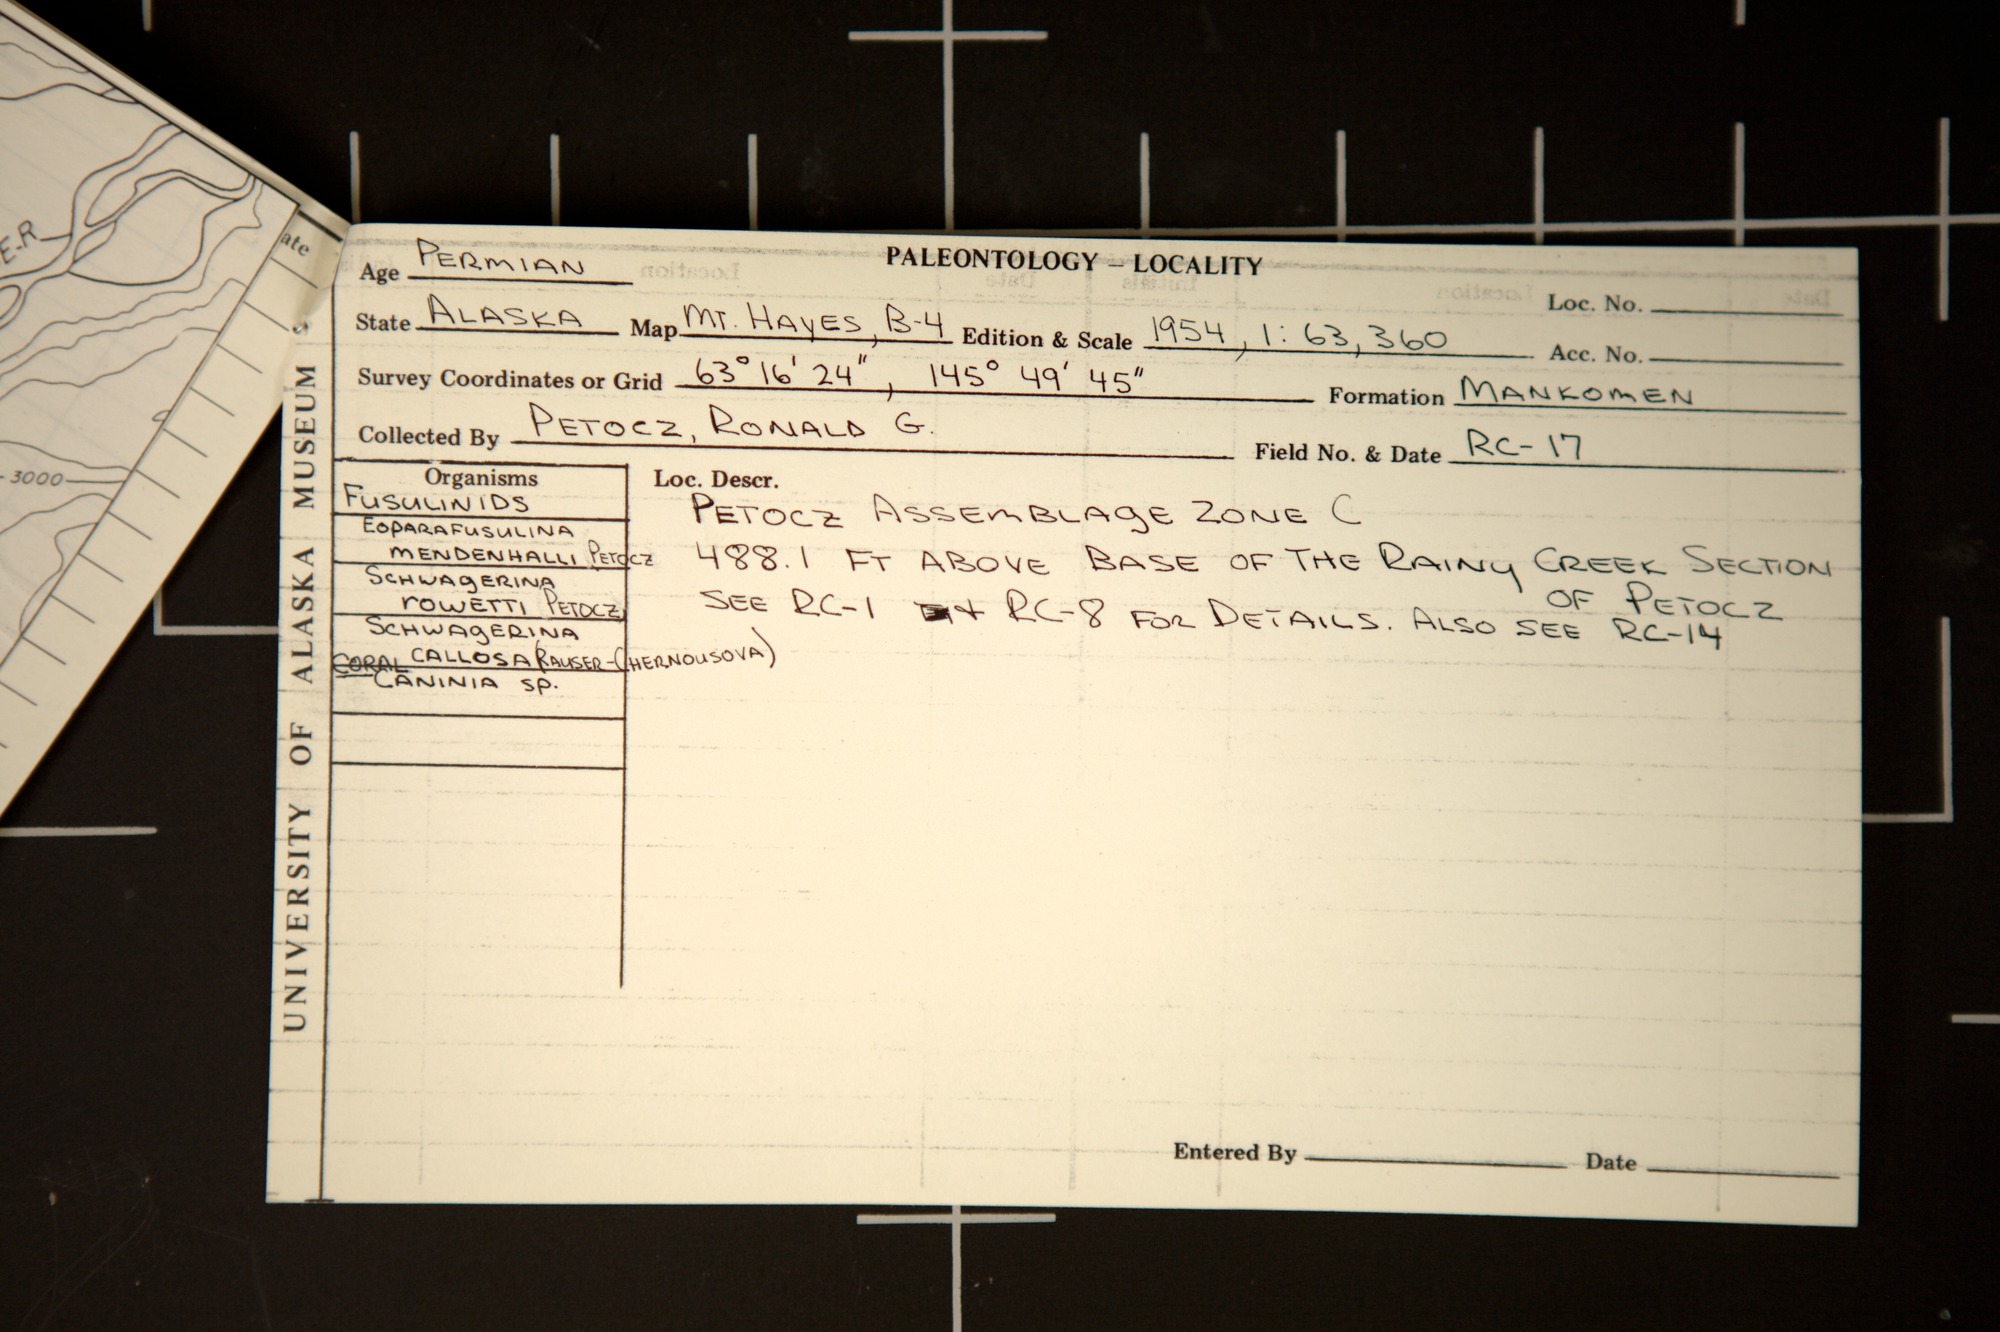 PALEONTOLOGY – LOCALITY
Age PERMIAN
Loc. No.
State ALASKA Map MT. HAYES, B-4 Edition & Scale 1954, 1:63,360
Acc. No.
Survey Coordinates or Grid 63° 16' 24", 145° 49' 45"
Formation MANKOMEN
Collected By PETOCZ, RONALD G.
Field No. & Date RC-17
Organisms
FUSULINIDS
EOPARAFUSULINA
MENDENHALLI PETOCZ
SCHWAGERINA
ROWETTI PETOCZ
SCHWAGERINA
CALLOSA RAUSER-CHERNOUSOVA)
CORAL
CANINIA SP.
Loc. Descr.
PETOCZ ASSEMBLAGE ZONE C
488.1 FT ABOVE BASE OF THE RAINY CREEK SECTION
OF PETOCZ
SEE RC-1 + RC-8 FOR DETAILS. ALSO SEE RC-14
Entered By Date
UNIVERSITY OF ALASKA MUSEUM
ate
ER
3000
Location
Date
Initials
Location
Date